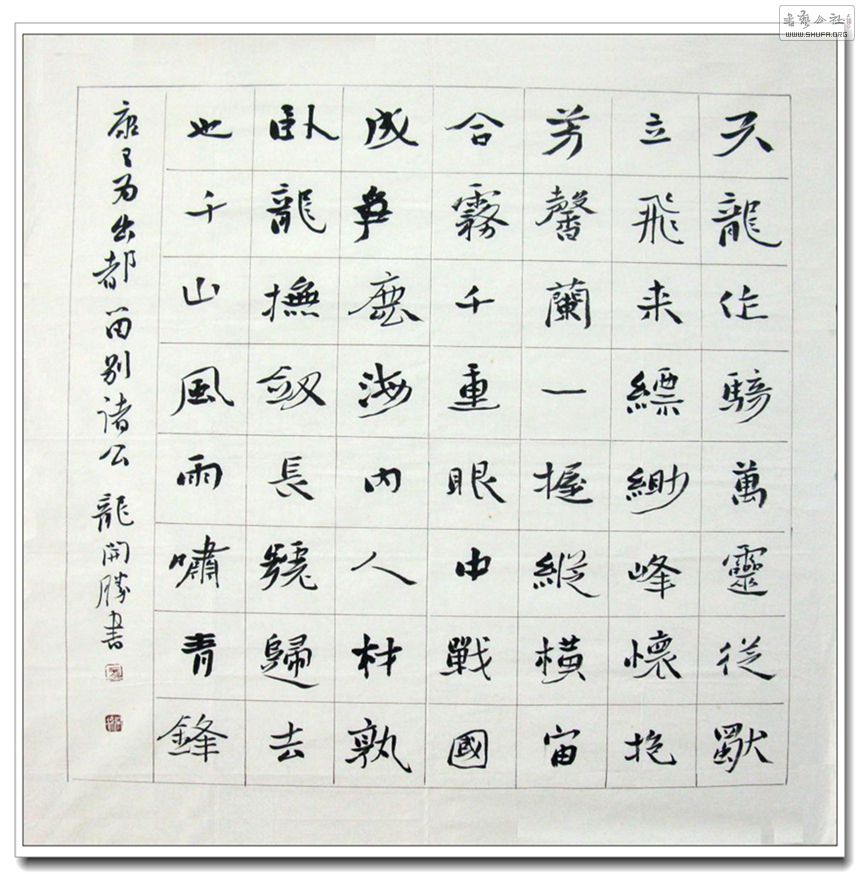 天龍作騎萬靈從獨
立飛来縹緲峰懷抱
芳馨蘭一握縱橫宙
合霧千重眼中戰國
成爭鹿海内人材孰
臥龍撫劔長號歸去
也千山風雨嘯青鋒
康有为出都留别诸公 龍開勝書
書藝公社
WWW.SHUFA.ORG